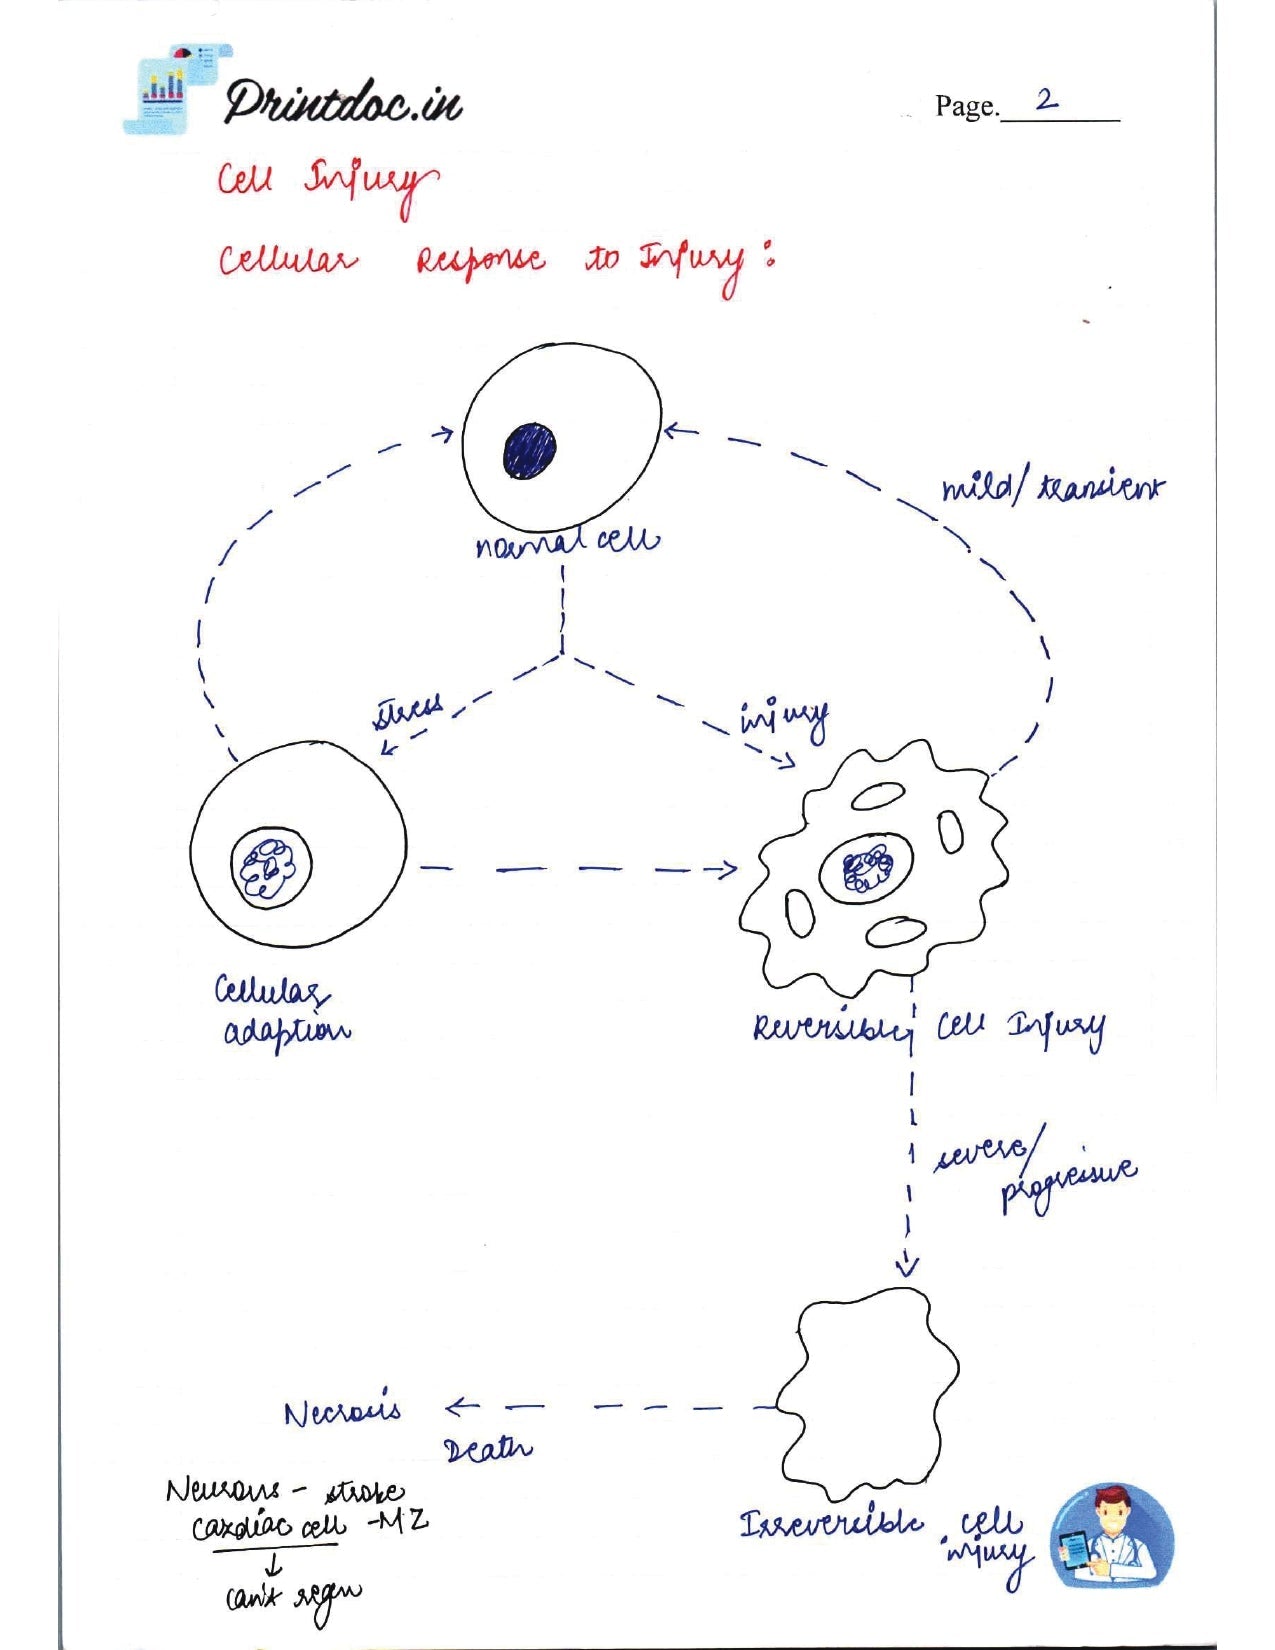 Printdoc.in
Page. 2
Cell Injury
Cellular Response to Injury :
normal cell
mild/ transient
stress
injury
Cellular
adaption
Reversible Cell Injury
severe/
progressive
Necrosis
Death
Neurons - stroke
Cardiac cell - MZ
can't regen
Irreversible cell
injury